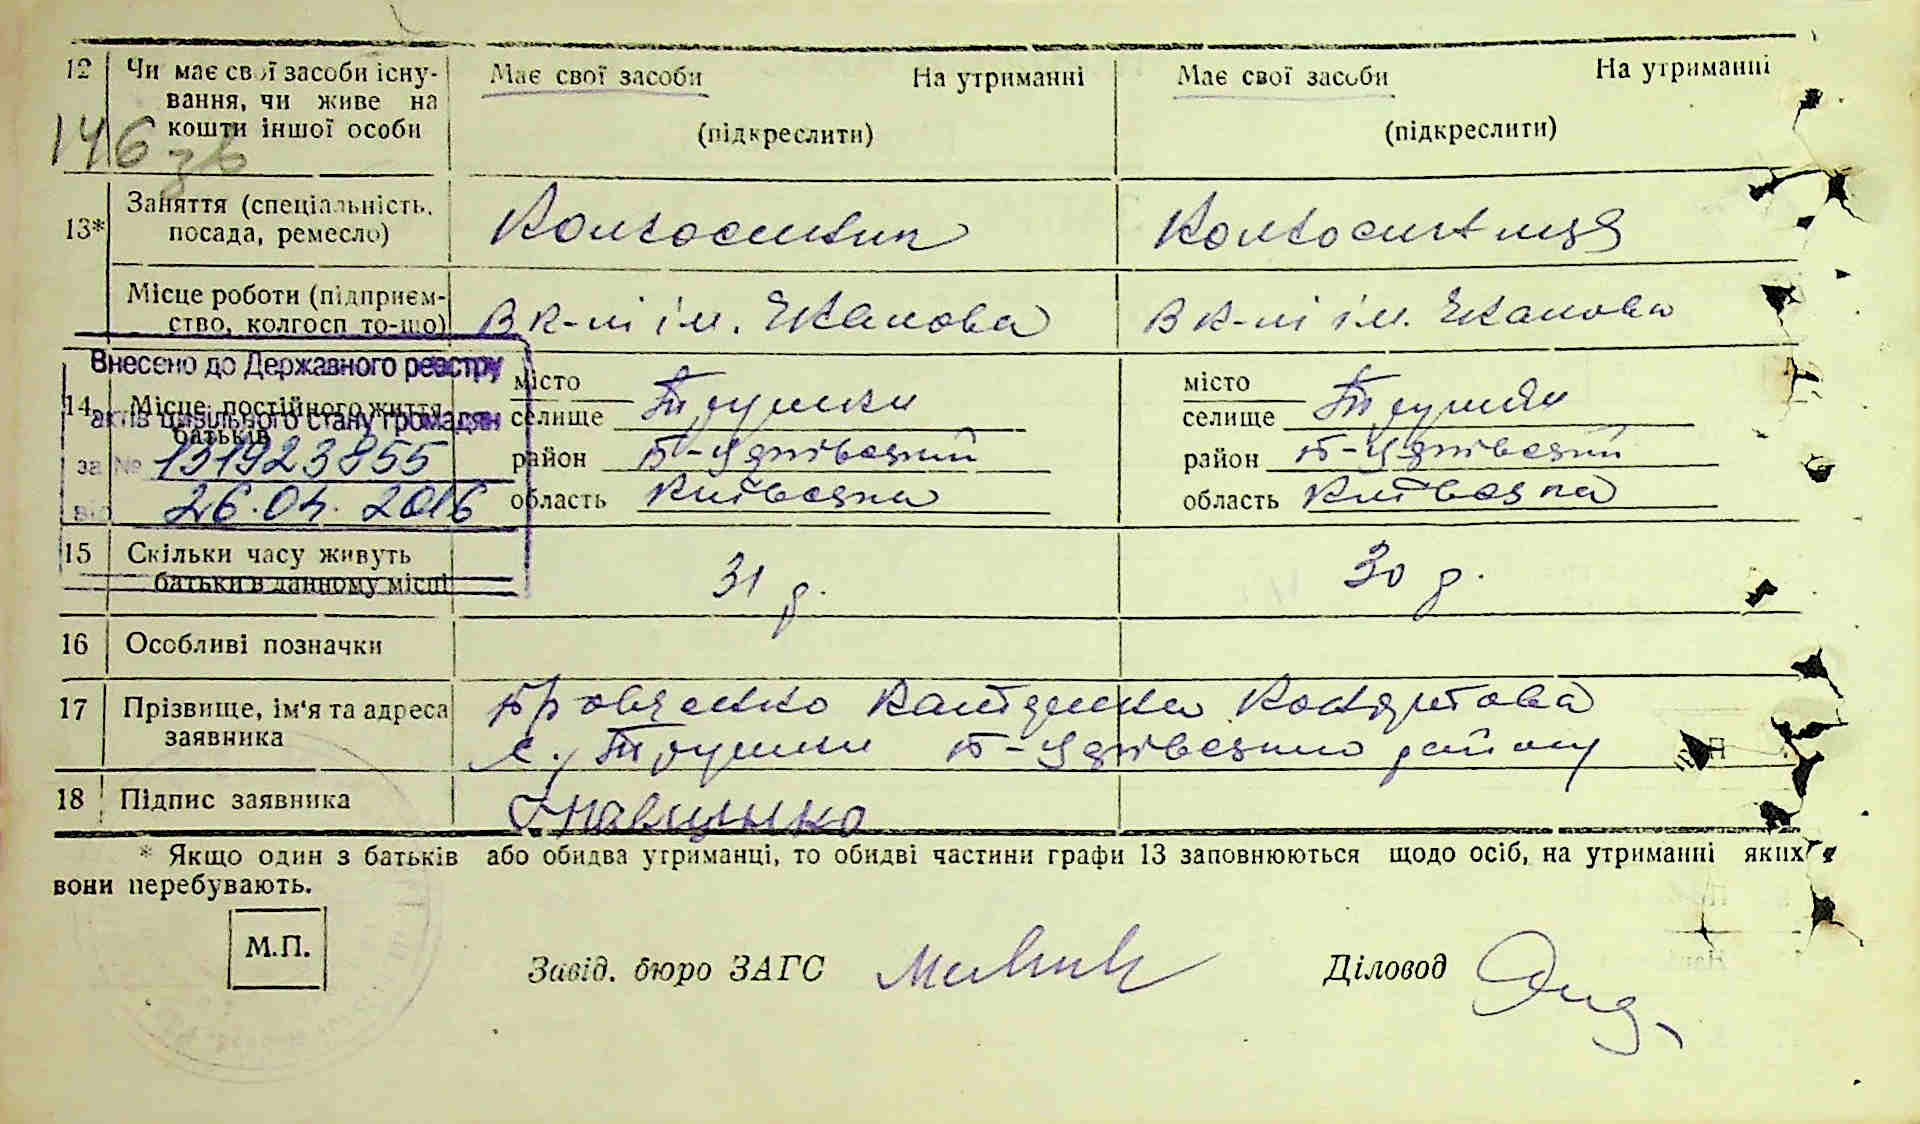 12 Чи має свої засоби існування, чи живе на кошти іншої особи
Має свої засоби На утриманні (підкреслити)
Має свої засоби На утриманні (підкреслити)
146 зв
13* Заняття (спеціальність, посада, ремесло)
Колхосник
Колхосниця
Місце роботи (підприємство, колгосп то-що)
В к-пі ім.
В к-пі ім.
Внесено до Державного реєстру
актів цивільного стану громадян
за № 131923855
від 26.04.2016
14. Місце постійного життя батьків
місто
селище Трушки
район Б-Церківський
область Київська
місто
селище Трушки
район Б-Церківський
область Київська
15 Скільки часу живуть батьки в данному місці
31 р.
30 р.
16 Особливі позначки
17 Прізвище, ім'я та адреса заявника
с. Трушки Б-Церківського району
18 Підпис заявника
* Якщо один з батьків або обидва утриманці, то обидві частини графи 13 заповнюються щодо осіб, на утриманні яких
вони перебувають.
М.П.
Завід. бюро ЗАГС
Діловод